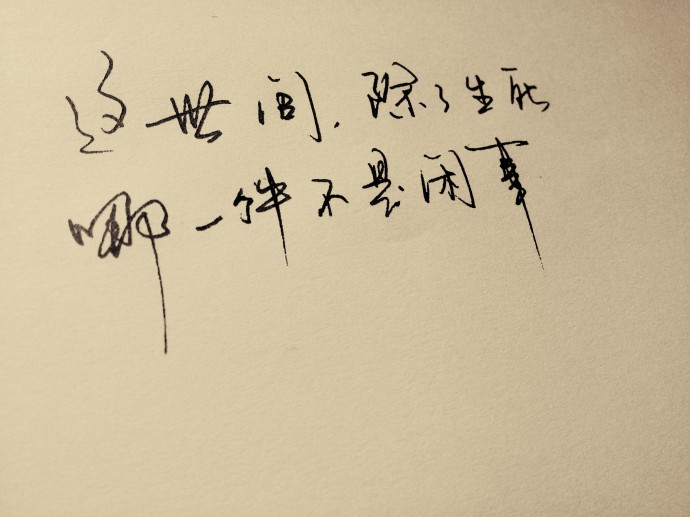 这世间，除了生死
哪一件不是闲事